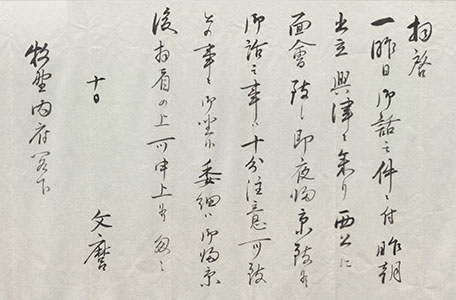 拝啓
一昨日御話之件ニ付昨朝
出立興津ニ参り西公に
面會致し即夜帰京致候
御話之事ハ十分注意可致
との事ニ御坐候委細ハ御帰京
後拝眉の上可申上候匆々
十日
文麿
牧野内府閣下